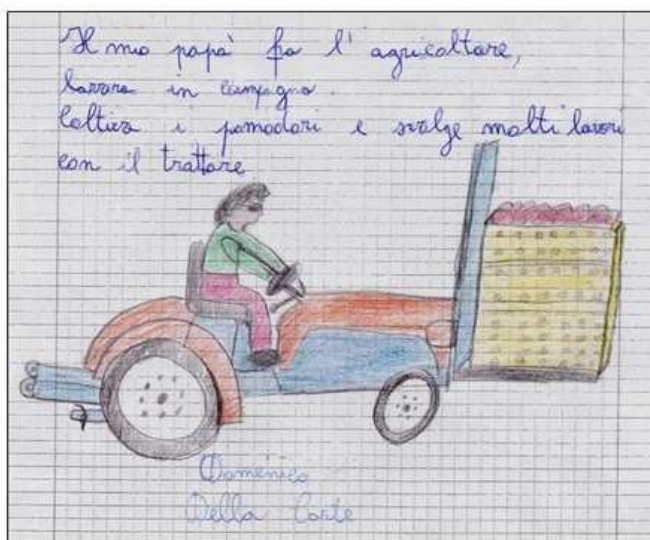 Il mio papà fa l'agricoltore,
lavora in campagna.
Coltiva i pomodori e svolge molti lavori
con il trattore
Domenico
Della Corte